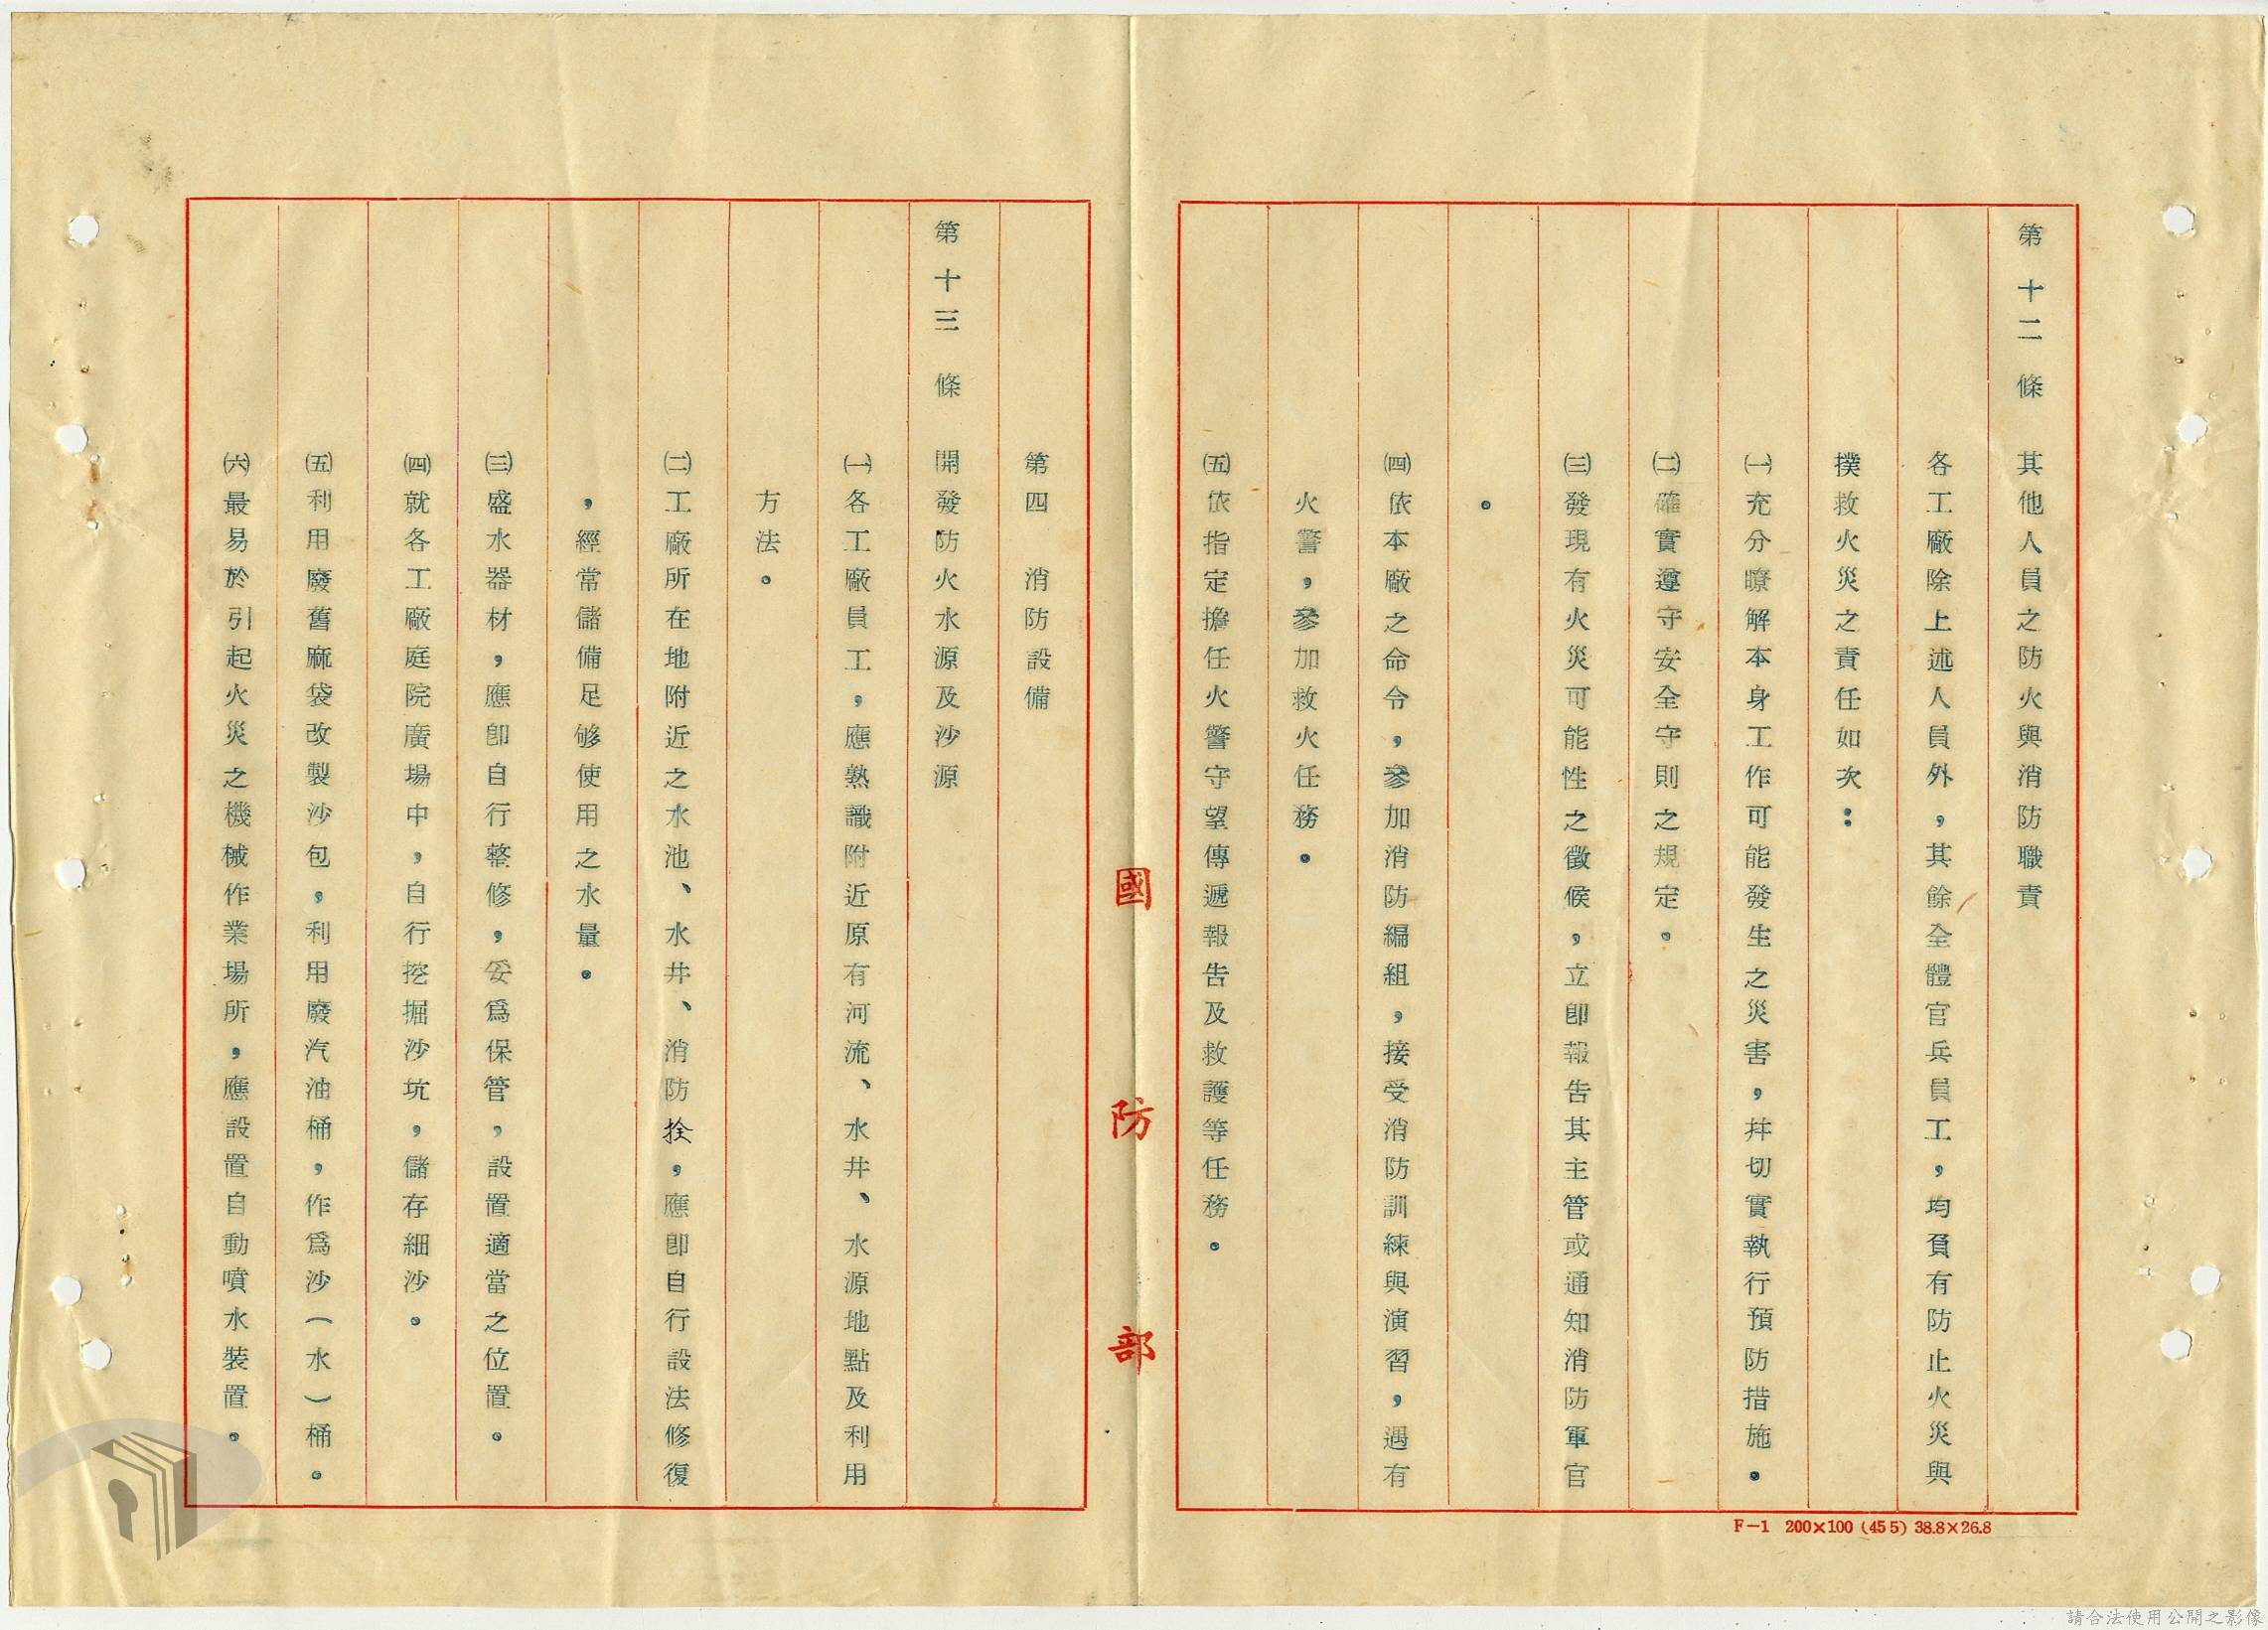 第十二條　其他人員之防火與消防職責
各工廠除上述人員外，其餘全體官兵員工，均負有防止火災與
撲救火災之責任如次：
㈠充分瞭解本身工作可能發生之災害，幷切實執行預防措施。
㈡確實遵守安全守則之規定。
㈢發現有火災可能性之徵候，立卽報告其主管或通知消防軍官
。
㈣依本廠之命令，參加消防編組，接受消防訓練與演習，遇有
火警，參加救火任務。
㈤依指定擔任火警守望傳遞報告及救護等任務。
國防部
第四　消防設備
第十三條　開發防火水源及沙源
㈠各工廠員工，應熟識附近原有河流、水井、水源地點及利用
方法。
㈡工廠所在地附近之水池、水井、消防拴，應卽自行設法修復
，經常儲備足够使用之水量。
㈢盛水器材，應卽自行整修，妥爲保管，設置適當之位置。
㈣就各工廠庭院廣場中，自行挖掘沙坑，儲存細沙。
㈤利用廢舊麻袋改製沙包，利用廢汽油桶，作爲沙（水）桶。
㈥最易於引起火災之機械作業場所，應設置自動噴水裝置。
F－1　200×100（45 5）38.8×26.8
請合法使用公開之影像